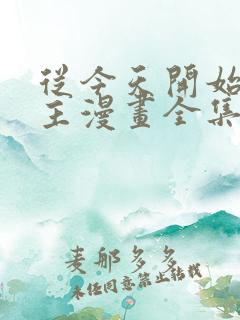 從今天開始
主漫畫全集
麦郍多多
未经同意禁止转载